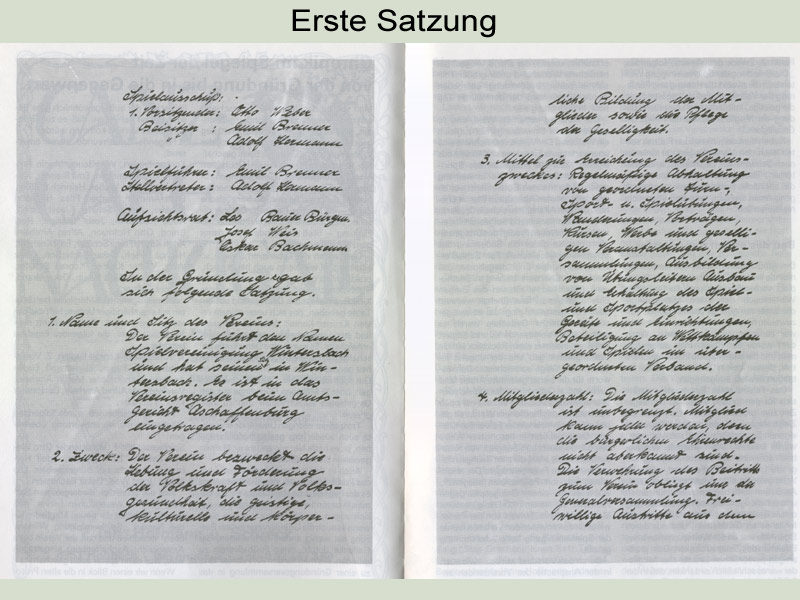 Erste Satzung
Spielausschuß:
1. Vorsitzender: Otto Weber
Beisitzer: Emil Brenner
" Adolf Hermann
Spielführer: Emil Brenner
Stellvertreter: Adolf Hermann
Aufsichtsrat: Leo Bauer Bürgerm.
Josef Weis
Oskar Bachmann
In der Gründung gab
sich folgende Satzung.
1. Name und Sitz des Vereins:
Der Verein führt den Namen
Spielvereinigung Wintersbach
und hat seinen in Win-
tersbach. Er ist in das
Vereinsregister beim Amts-
gericht Aschaffenburg
eingetragen.
2. Zweck: Der Verein bezweckt die
Hebung und Förderung
der Volkskraft und Volks-
gesundheit, die geistige,
kulturelle und körper-
liche Bildung der Mit-
glieder sowie die Pflege
der Geselligkeit.
3. Mittel zur Erreichung des Vereins-
zweckes: Regelmäßige Abhaltung
von geordneten Turn-,
Sport- u. Spielübungen,
Wanderungen, Vorträgen,
Kursen, Werbe und geselli-
gen Veranstaltungen, Ver-
sammlungen, Ausbildung
von Übungsleitern Ausbau
und Erhaltung des Spiel-
und Sportplatzes der
Geräte und Einrichtungen,
Beteiligung an Wettkämpfen
und Spielen im über-
geordneten Verband.
4. Mitgliederzahl: Die Mitgliederzahl
ist unbegrenzt. Mitglied
kann jeder werden, dem
die bürgerlichen Ehrenrechte
nicht aberkannt sind.
Die Verwehrung des Beitritts
zum Verein obliegt nur der
Generalversammlung. Frei-
willige Austritte aus dem